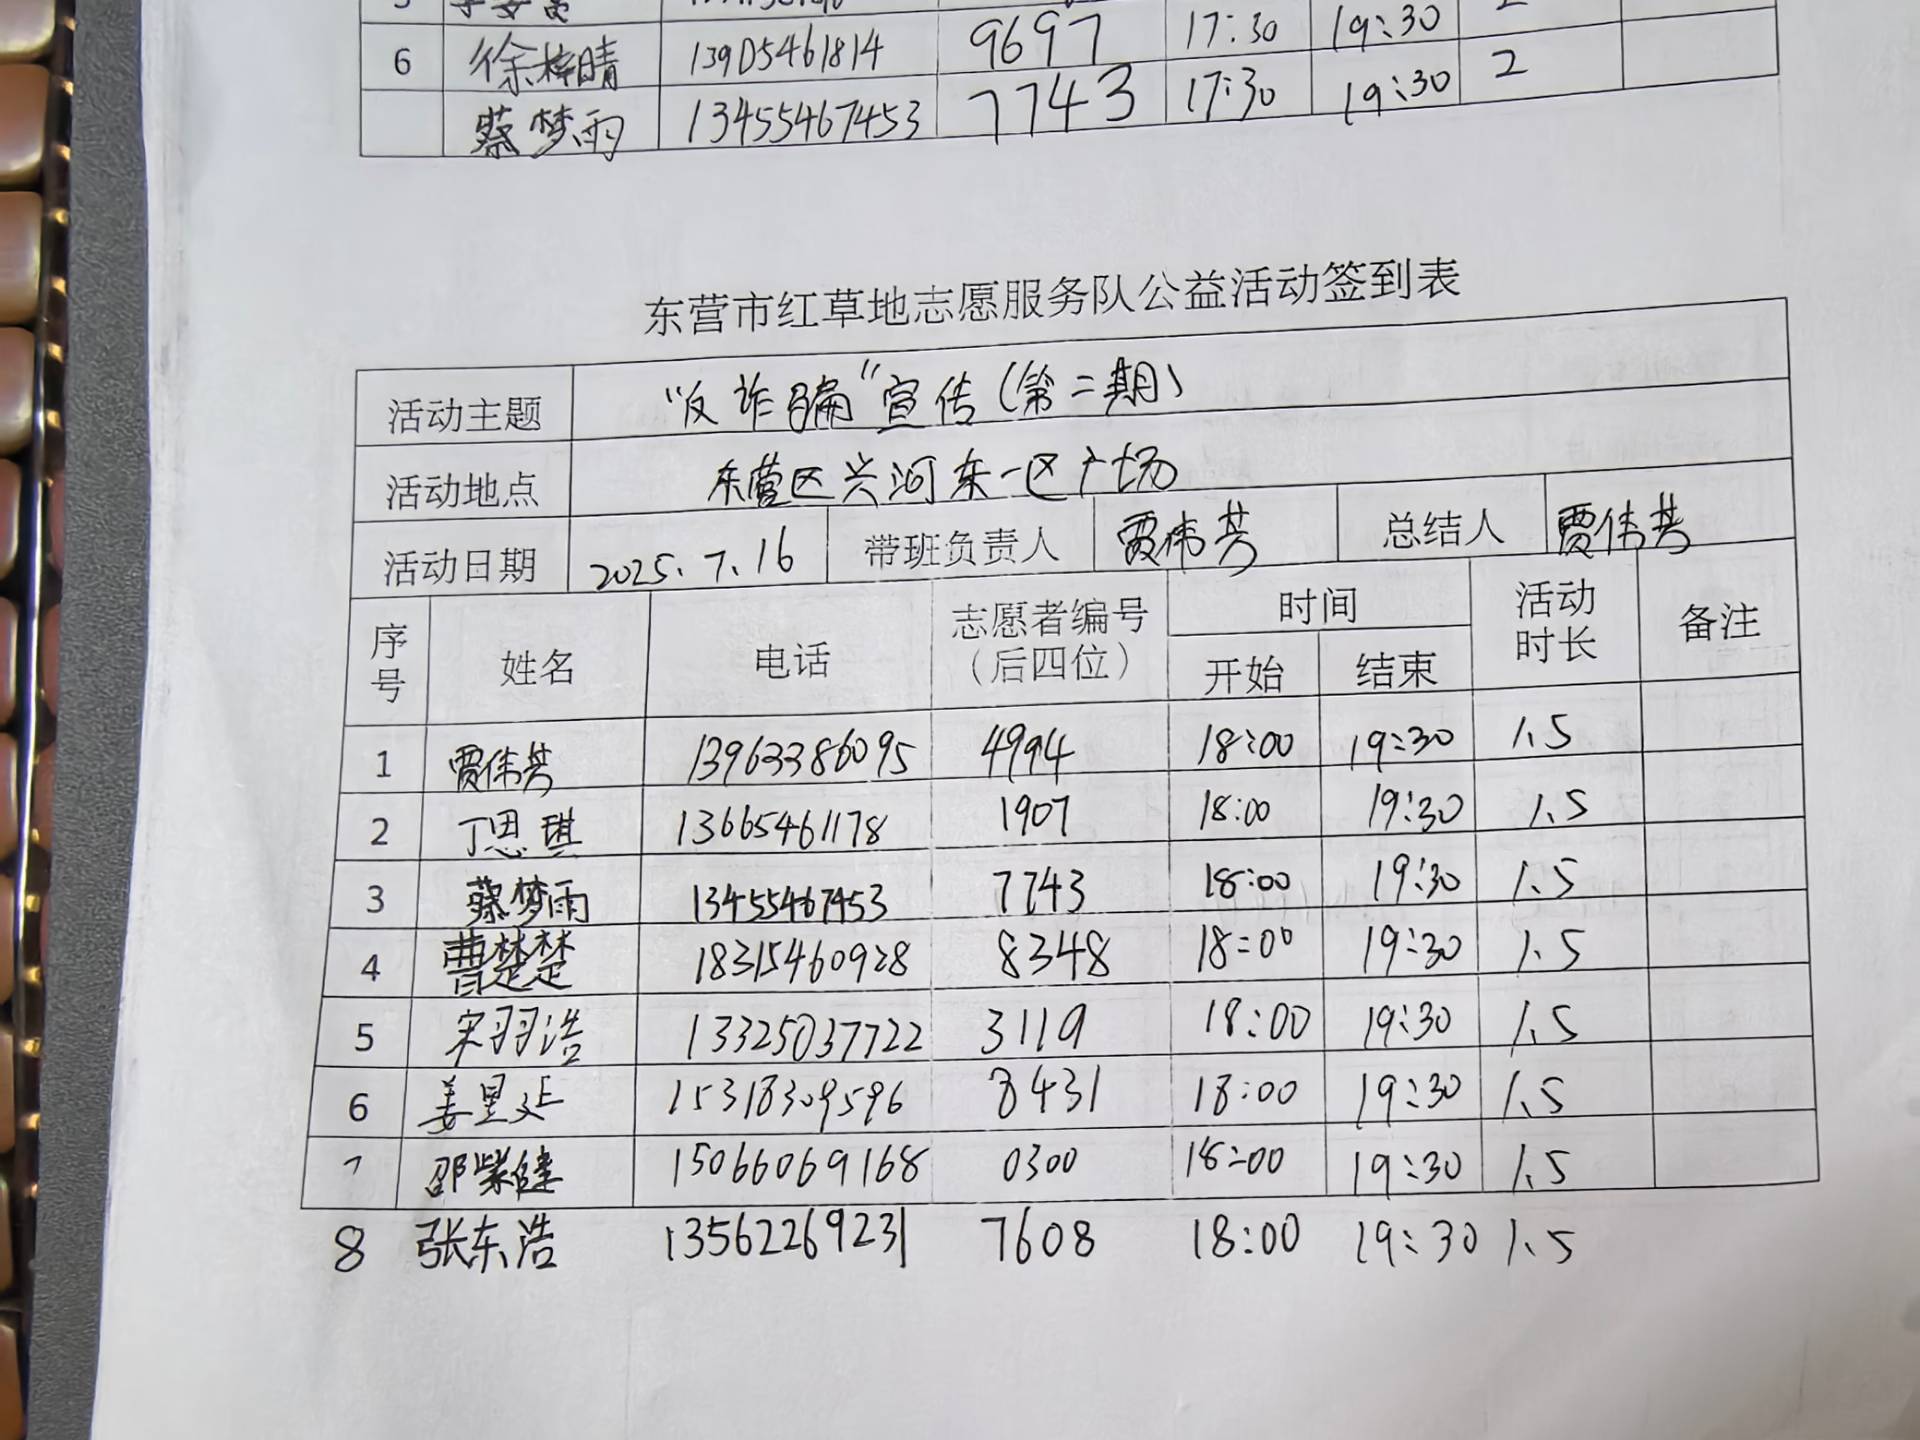 6 徐梓晴 13905461814 9697 17:30 19:30 2
蔡梦雨 13455467453 7743 17:30 19:30 2
东营市红草地志愿服务队公益活动签到表
活动主题 “反诈骗”宣传(第二期)
活动地点 东营区兴河东一区广场
活动日期 2025.7.16 带班负责人 贾伟芳 总结人 贾伟芳
序号 姓名 电话 志愿者编号(后四位) 时间 开始 结束 活动时长 备注
1 贾伟芳 13963386095 4994 18:00 19:30 1.5
2 丁思琪 13665461178 1907 18:00 19:30 1.5
3 蔡梦雨 13455467453 7743 18:00 19:30 1.5
4 曹楚楚 18315460928 8348 18:00 19:30 1.5
5 宋羽浩 13325037722 3119 18:00 19:30 1.5
6 15318309596 8431 18:00 19:30 1.5
7 邵紫健 15066069168 0300 18:00 19:30 1.5
8 张东浩 13562269231 7608 18:00 19:30 1.5